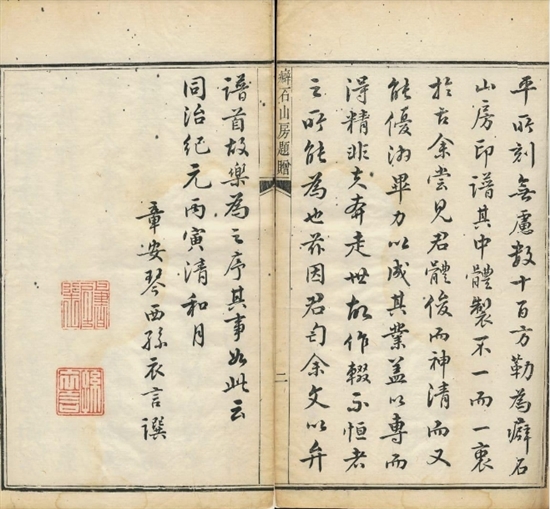 平所刻無慮數十百方勒為癖石
山房印譜其中體製不一而一衷
於古余嘗見君體俊而神清而又
能優游畢力以成其業蓋以專而
得精非夫奔走世故作輟不恒者
之所能為也茲因君匄余文以弁
癖石山房題贈
二
譜首故樂為之序其事如此云
同治紀元丙寅清和月
章安琴西孫衣言譔